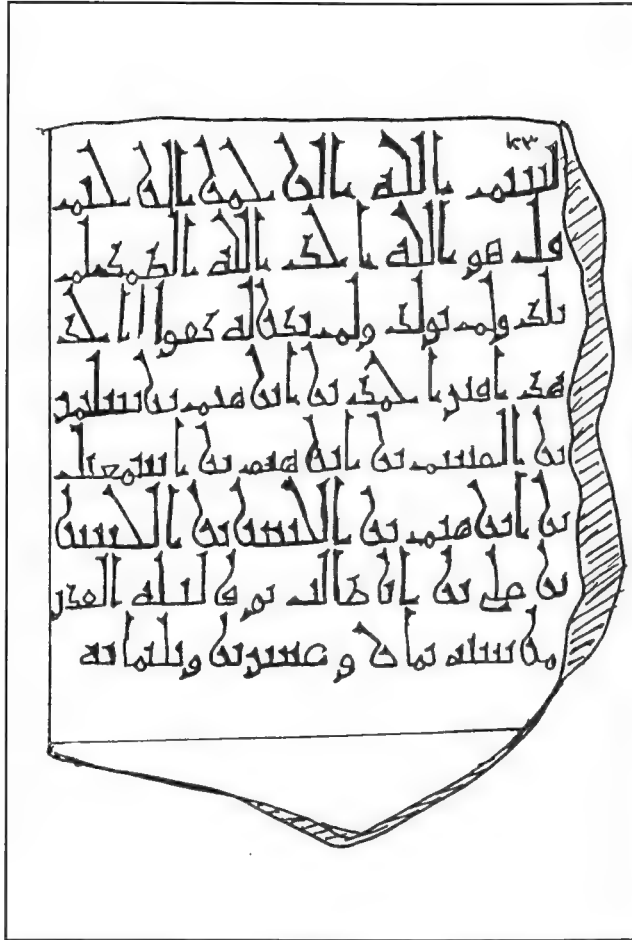 بسم الله الرحمن الرحيم
قل هو الله احد الله الصمد لم
يلد ولم يولد ولم يكن له كفوا احد
هذا قبر احمد بن ابرهيم بن سليمن
بن القسم بن ابرهيم بن اسمعيل
بن ابرهيم بن الحسن بن الحسين
بن علي بن ابي طالب توفي ليلة القدر
من سنة ثمان وعشرين وثلثمائة